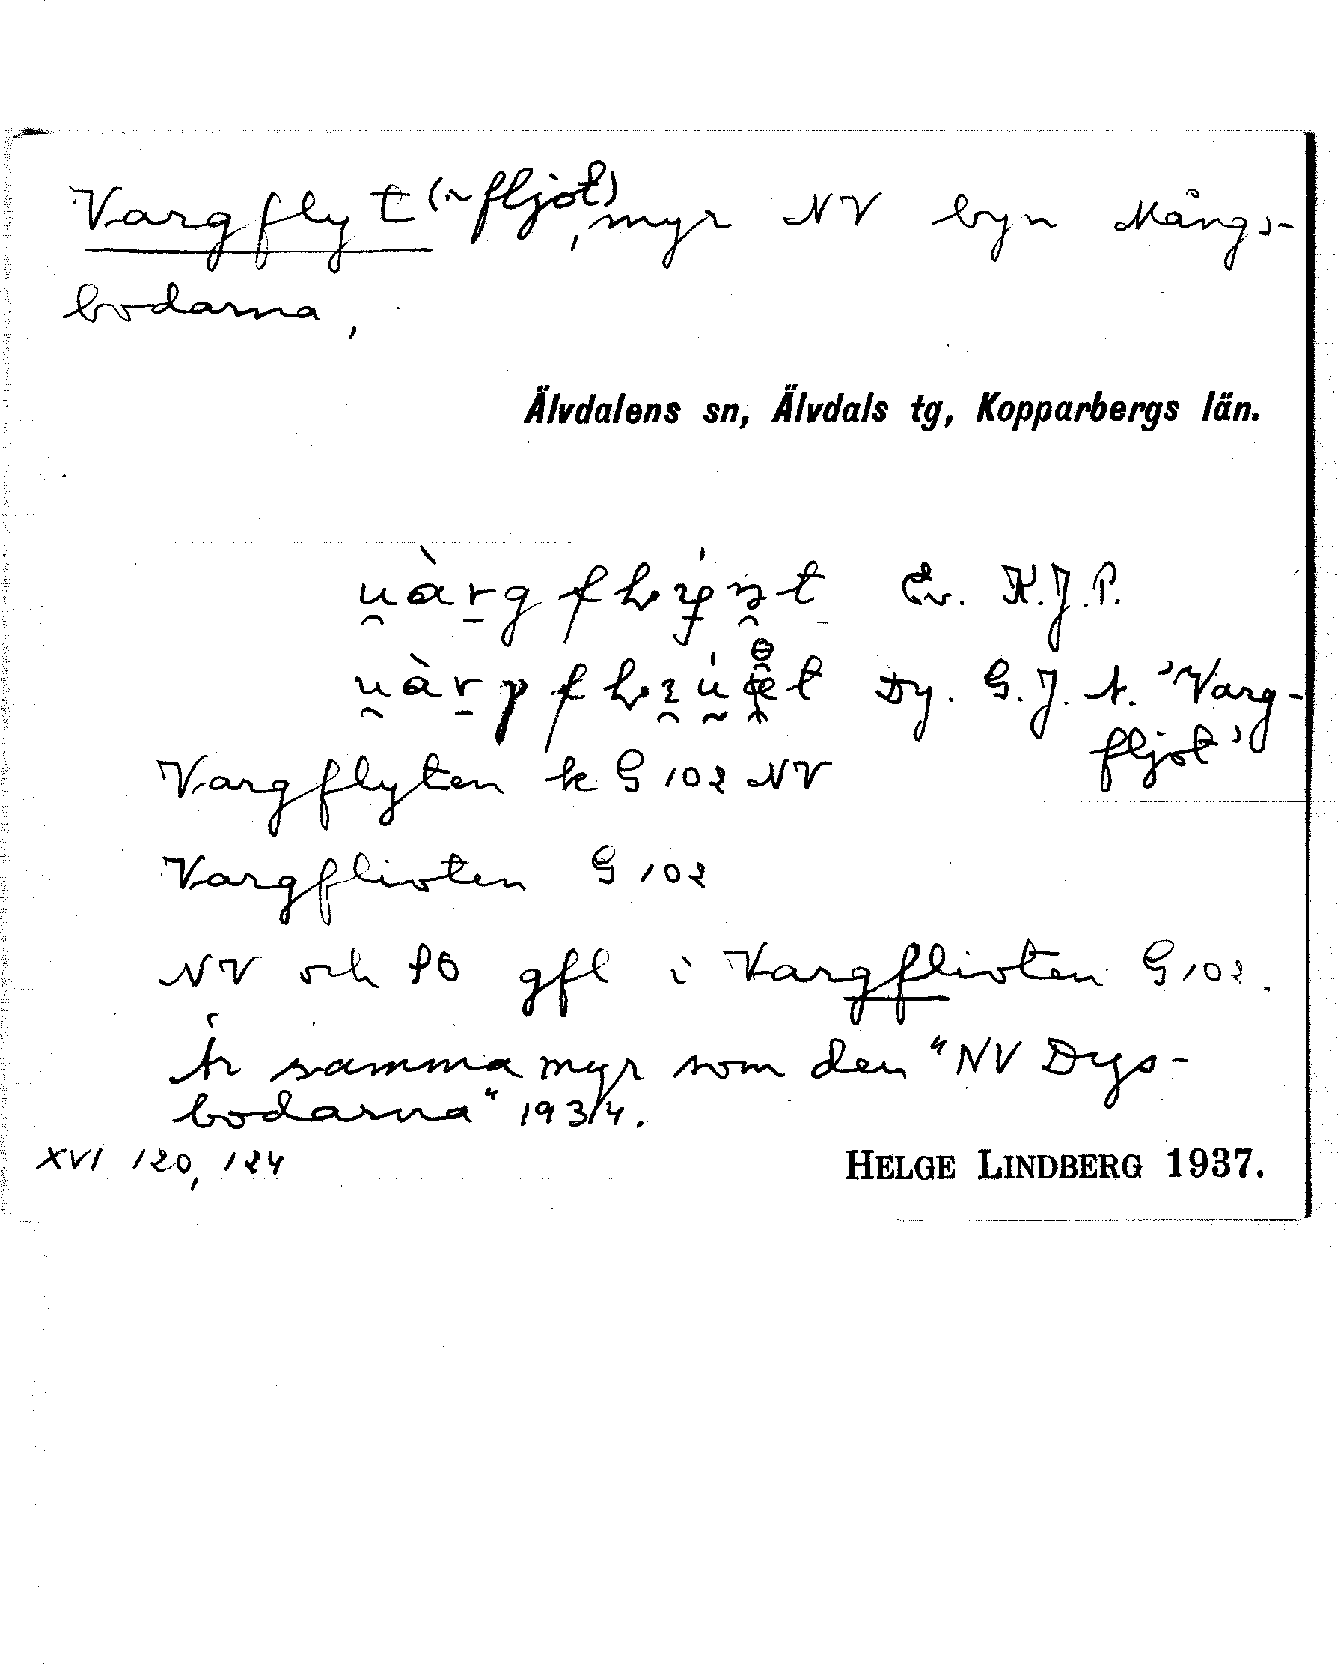 Vargflyt (~fljot), myr NV byn Mångs-
bodarna,
Älvdalens sn, Älvdals tg, Kopparbergs län.
Ev. K.J.P.
Dy. G.J.A. "Varg-
fljot"
Vargflyten k G 102 NV
Vargflioten G 102
NV och SO gfl i Vargflioten G 102.
Är samma myr som den "NV Dys-
bodarna" 1934.
XVI 120, 124
HELGE LINDBERG 1937.